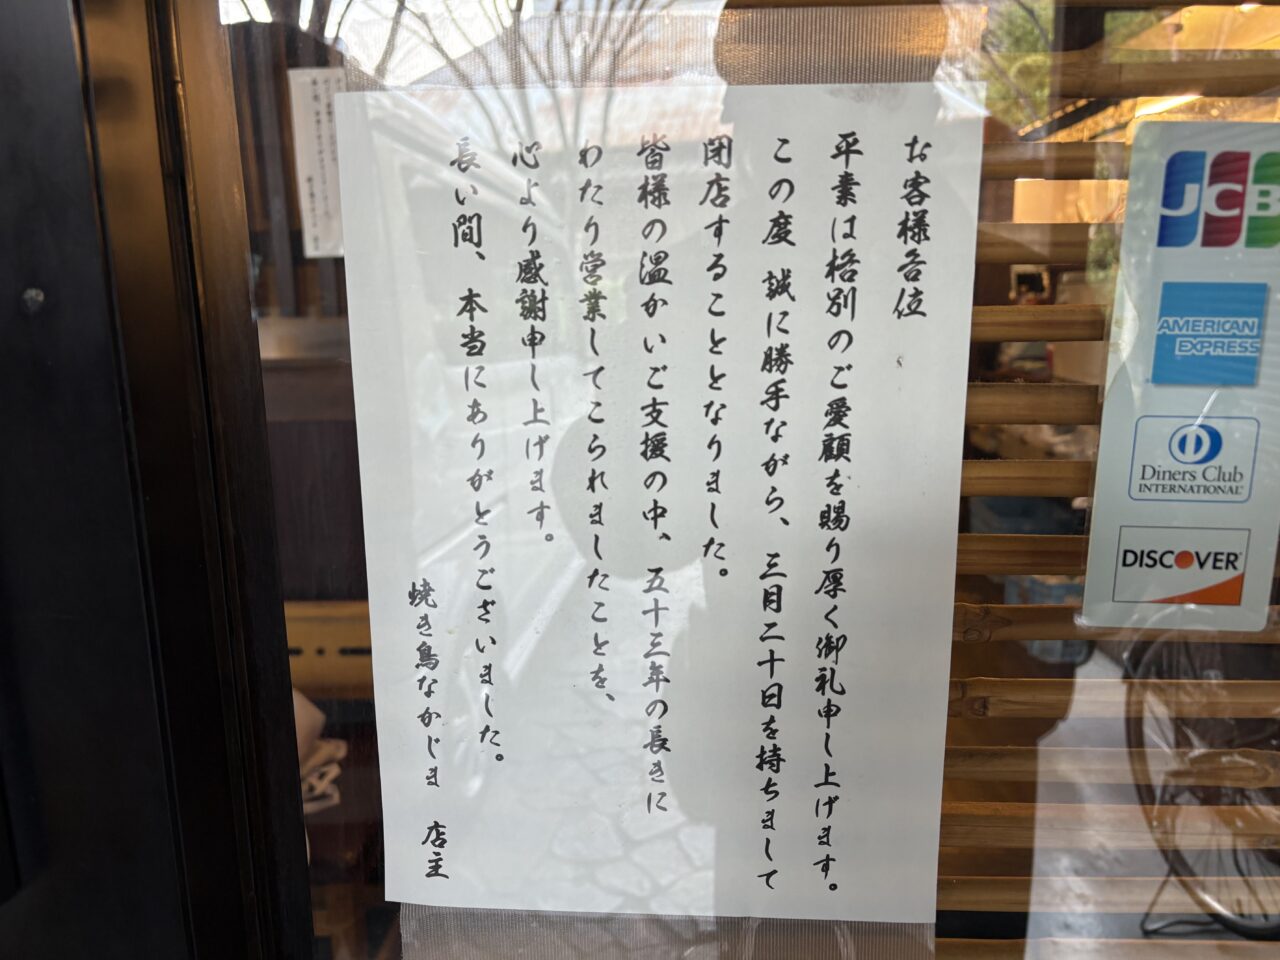 お客様各位
平素は格別のご愛顧を賜り厚く御礼申し上げます。
この度 誠に勝手ながら、三月二十日を持ちまして
閉店することとなりました。
皆様の温かいご支援の中、五十三年の長きに
わたり営業してこられましたことを、
心より感謝申し上げます。
長い間、本当にありがとうございました。
焼き鳥なかじま 店主
JCB
AMERICAN
EXPRESS
Diners Club
INTERNATIONAL
DISCOVER